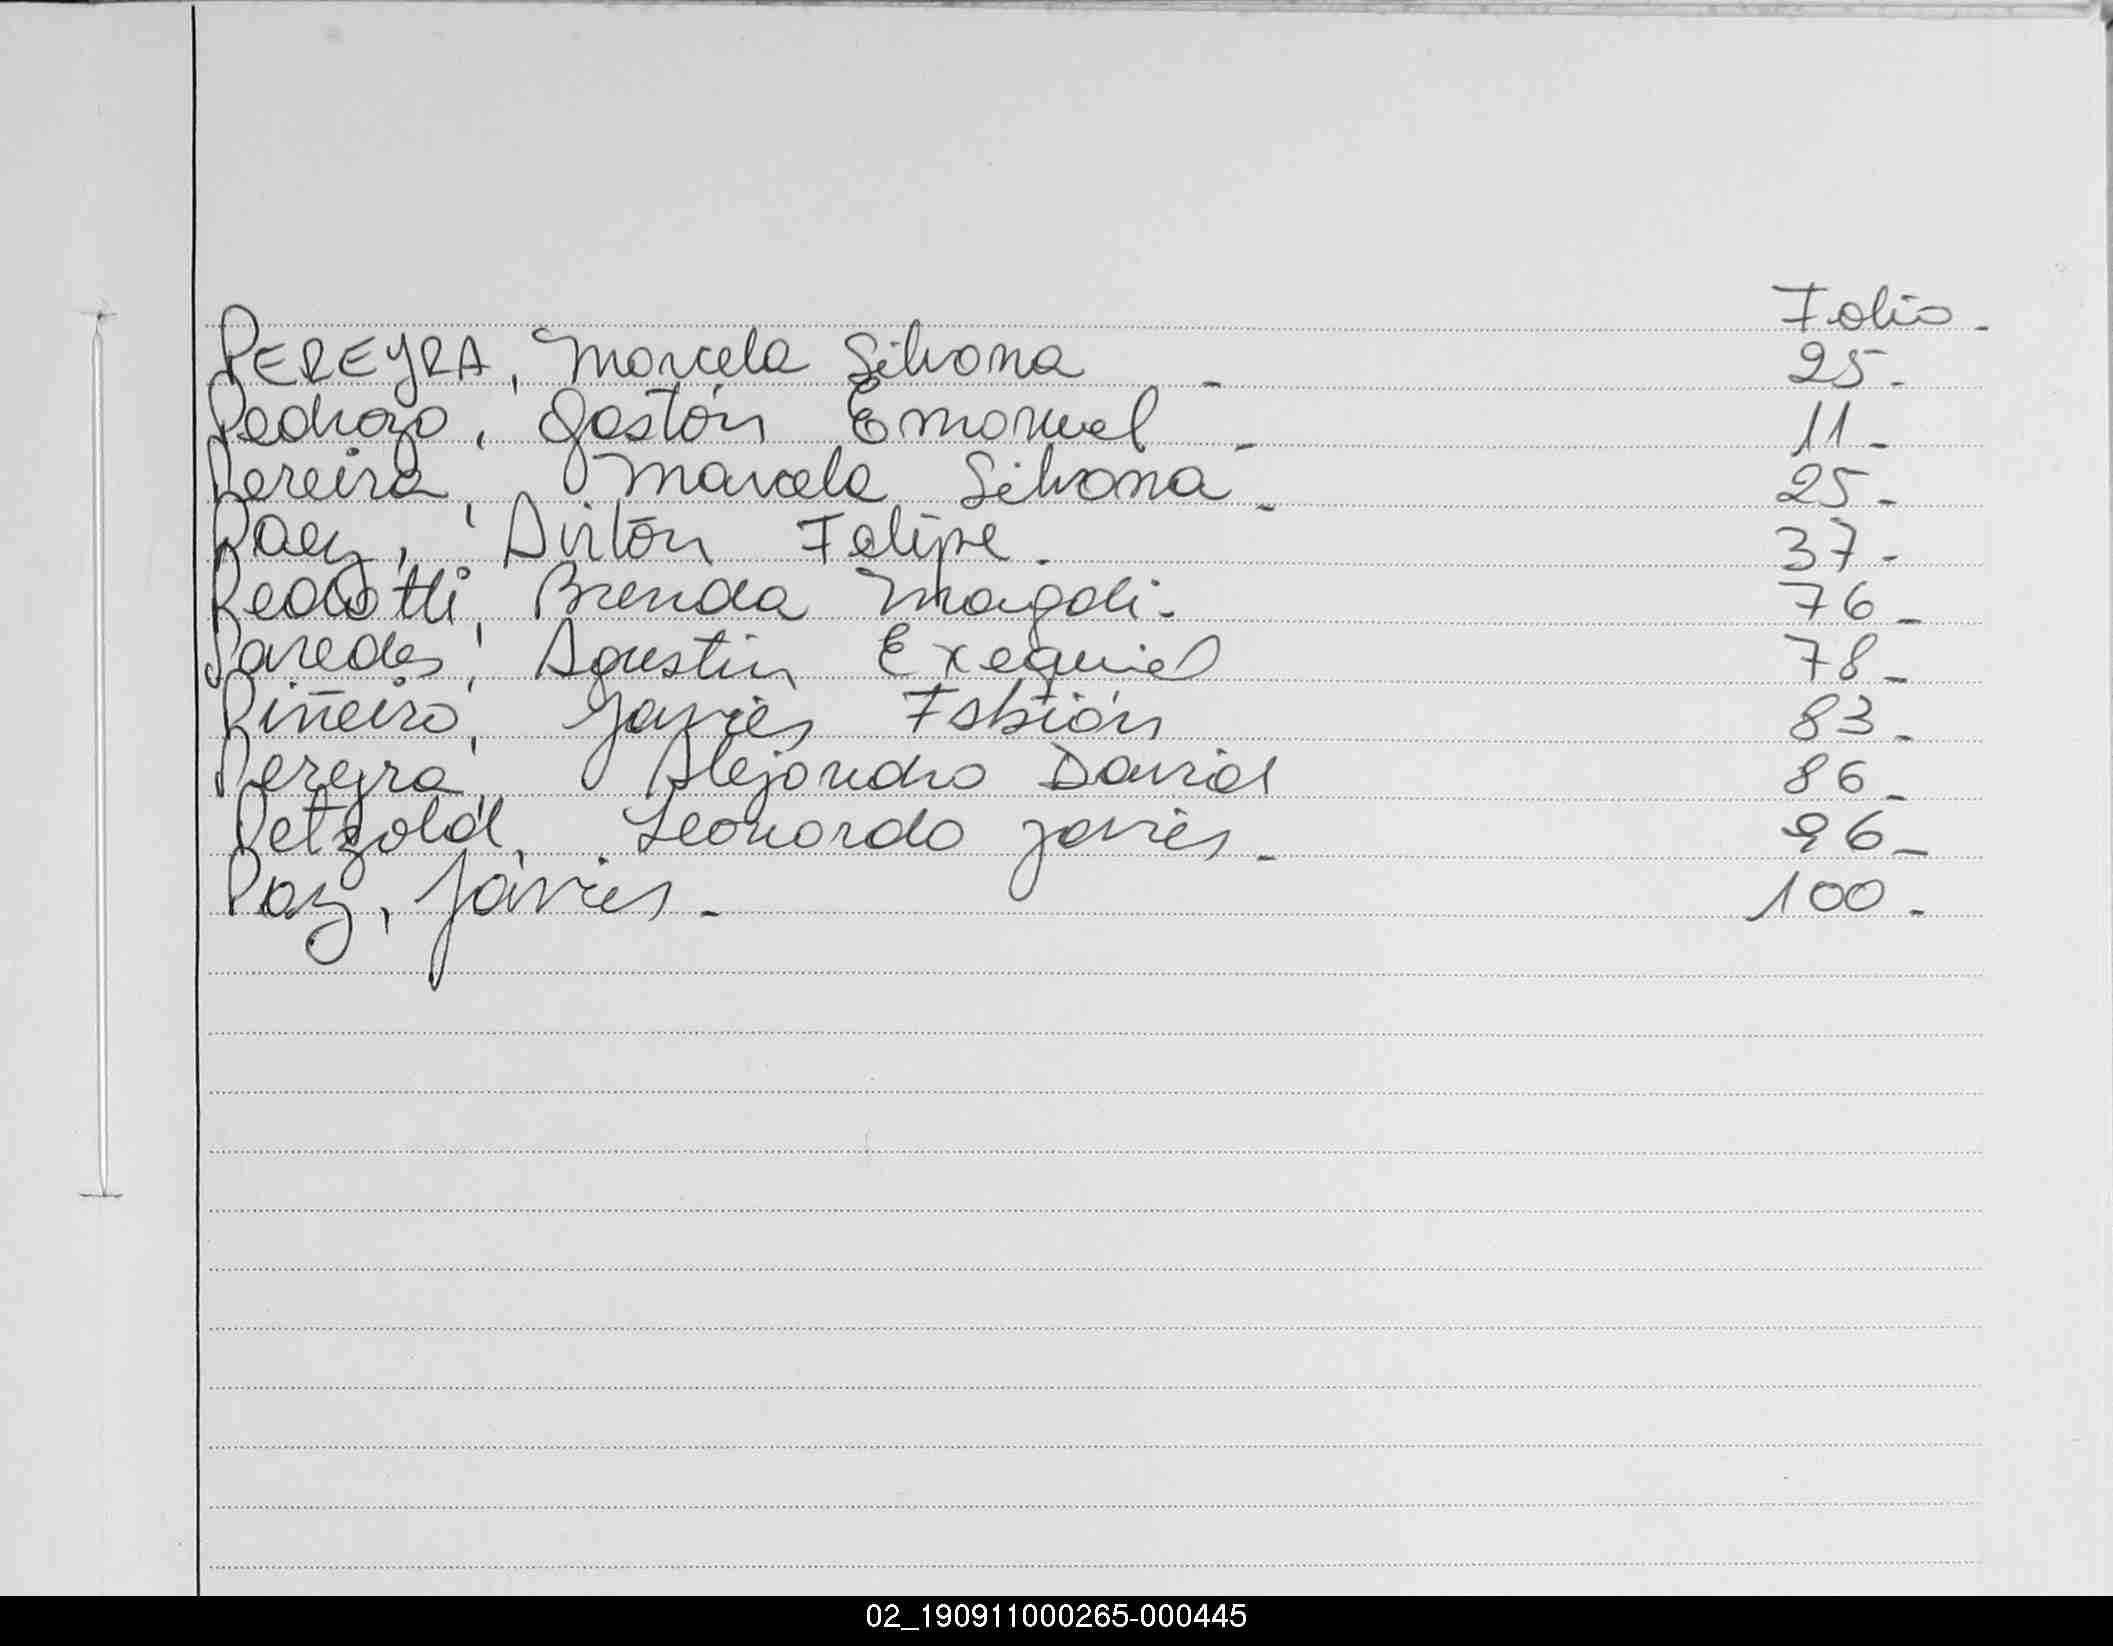 Folio.
PEREYRA, Marcela Silvana - 25.
Pedrozo, Gastón Emanuel - 11.
Pereira, Marcela Silvana - 25.
Paez, Airtón Felipe. 37.
Brenda Magali. 76.
Paredes, Agustín Exequiel 78.
Piñeiro, Javier Fabián 83.
Pereyra, Alejandro David 86.
Petzold, Leonardo Javier. 96.
Paz, Javier. 100.
02_190911000265-000445